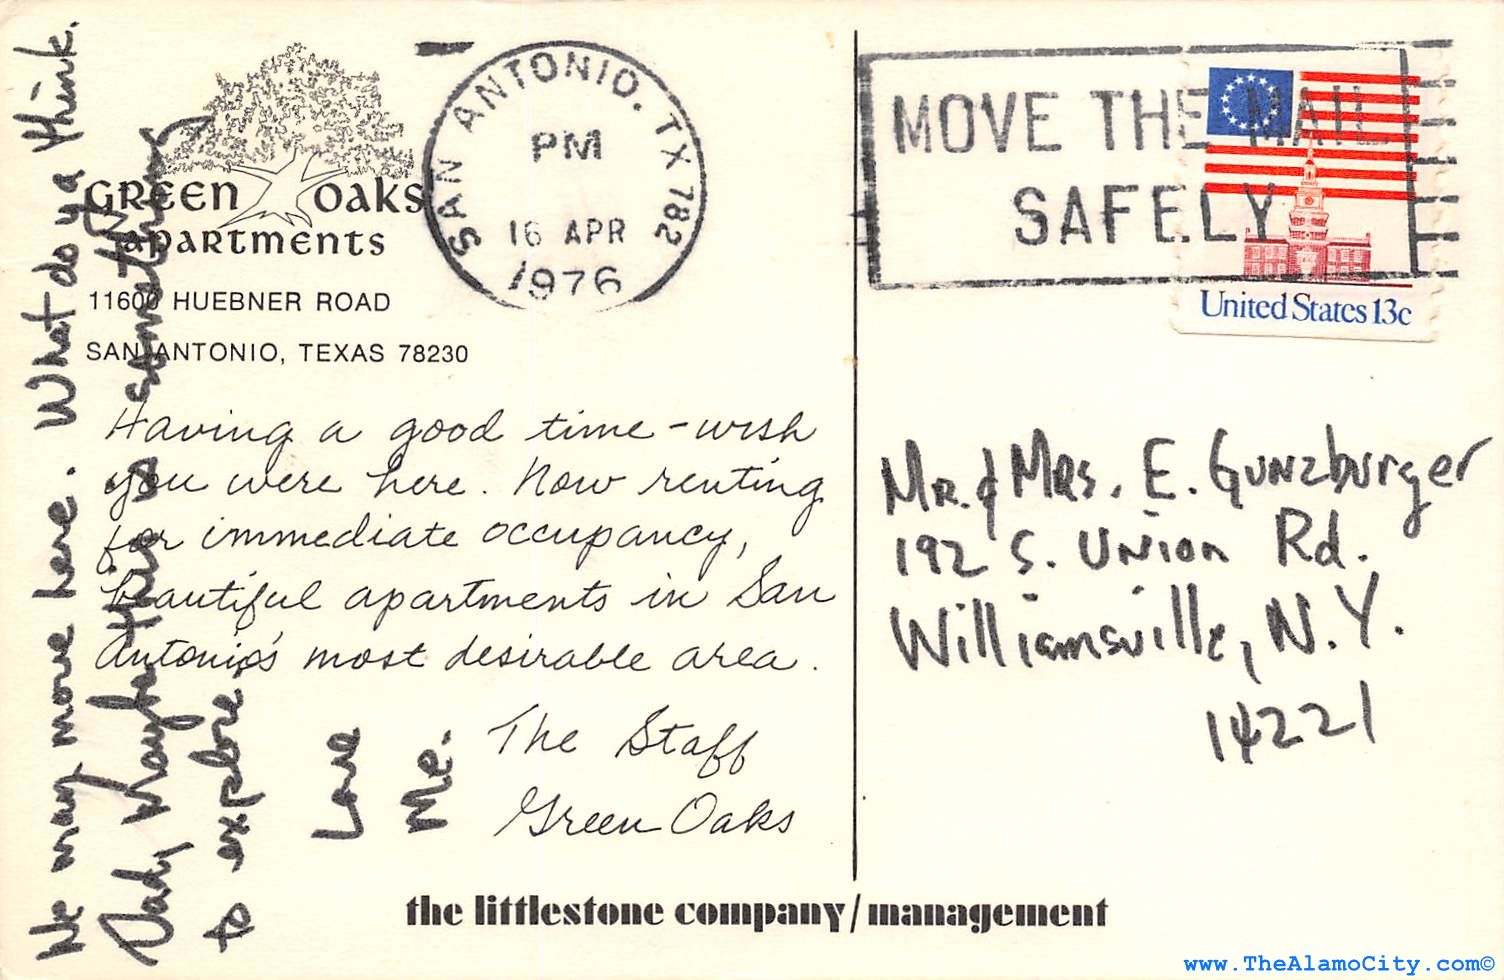 GREEN OAKS
APARTMENTS
11600 HUEBNER ROAD
SAN ANTONIO, TEXAS 78230
SAN ANTONIO, TX 782
PM
16 APR
1976
MOVE THE MAIL
SAFELY
United States 13c
Having a good time - wish
you were here. Now renting
for immediate occupancy,
beautiful apartments in San
Antonio's most desirable area.
The Staff
Green Oaks
We may move here. What do ya think.
Dad, Maybe this is something
to explore.
Love
Me.
Mr. & Mrs. E. Gunzburger
192 S. Union Rd.
Williamsville, N.Y.
14221
the littlestone company/management
www.TheAlamoCity.com©